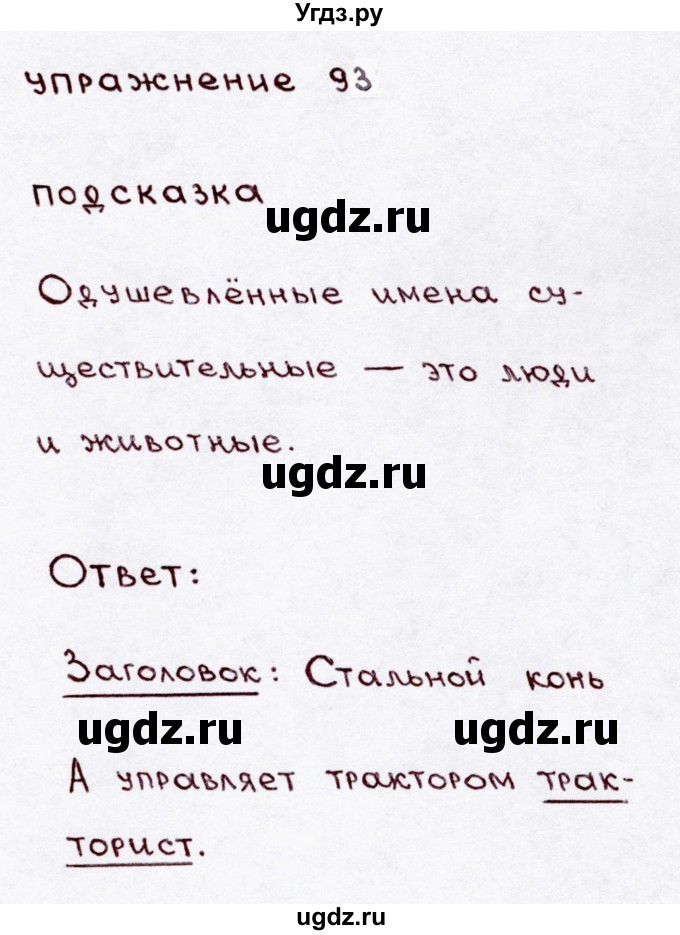 Угдз.ру
упражнение 93
подсказка
ugdz.ru
Одушевлённые имена су-
ществительные — это люди
и животные.
ugdz.ru
Ответ:
Заголовок: Стальной конь
ugdz.ru ugdz.ru
А управляет трактором трак-
торист.
ugdz.ru